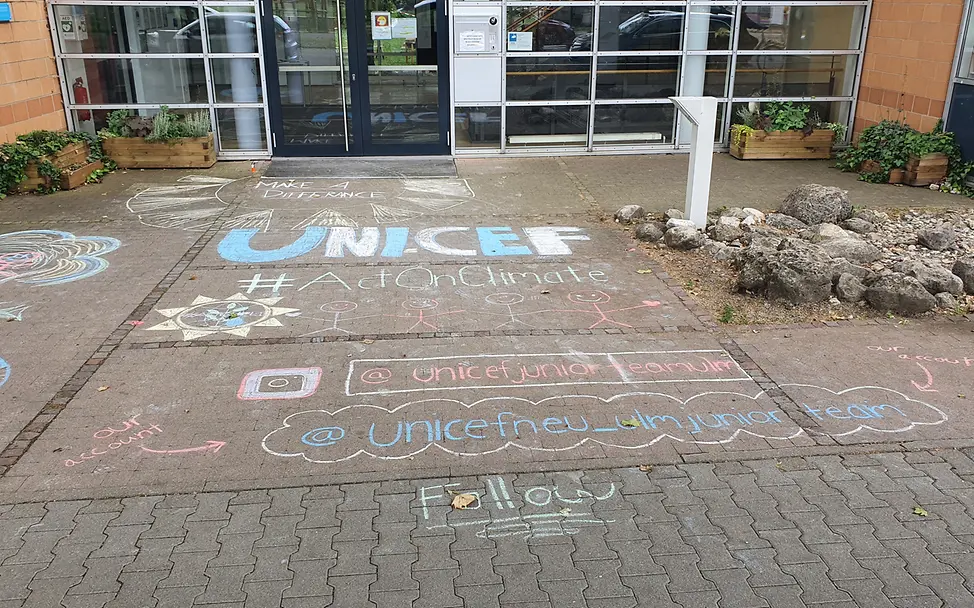 MAKE A
DIFFERANCE
UNICEF
#ActOnClimate
@unicefjuniorteamulm
our account
@unicefneu_ulmjuniorteam
our
account
Follow